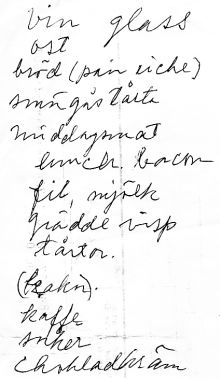 vin glass
ost
bröd (pain riche)
smörgåstårta
middagsmat
lunch, bacon
fil, mjölk
grädde visp
tårtor.
kaffe
soker
chokladkräm